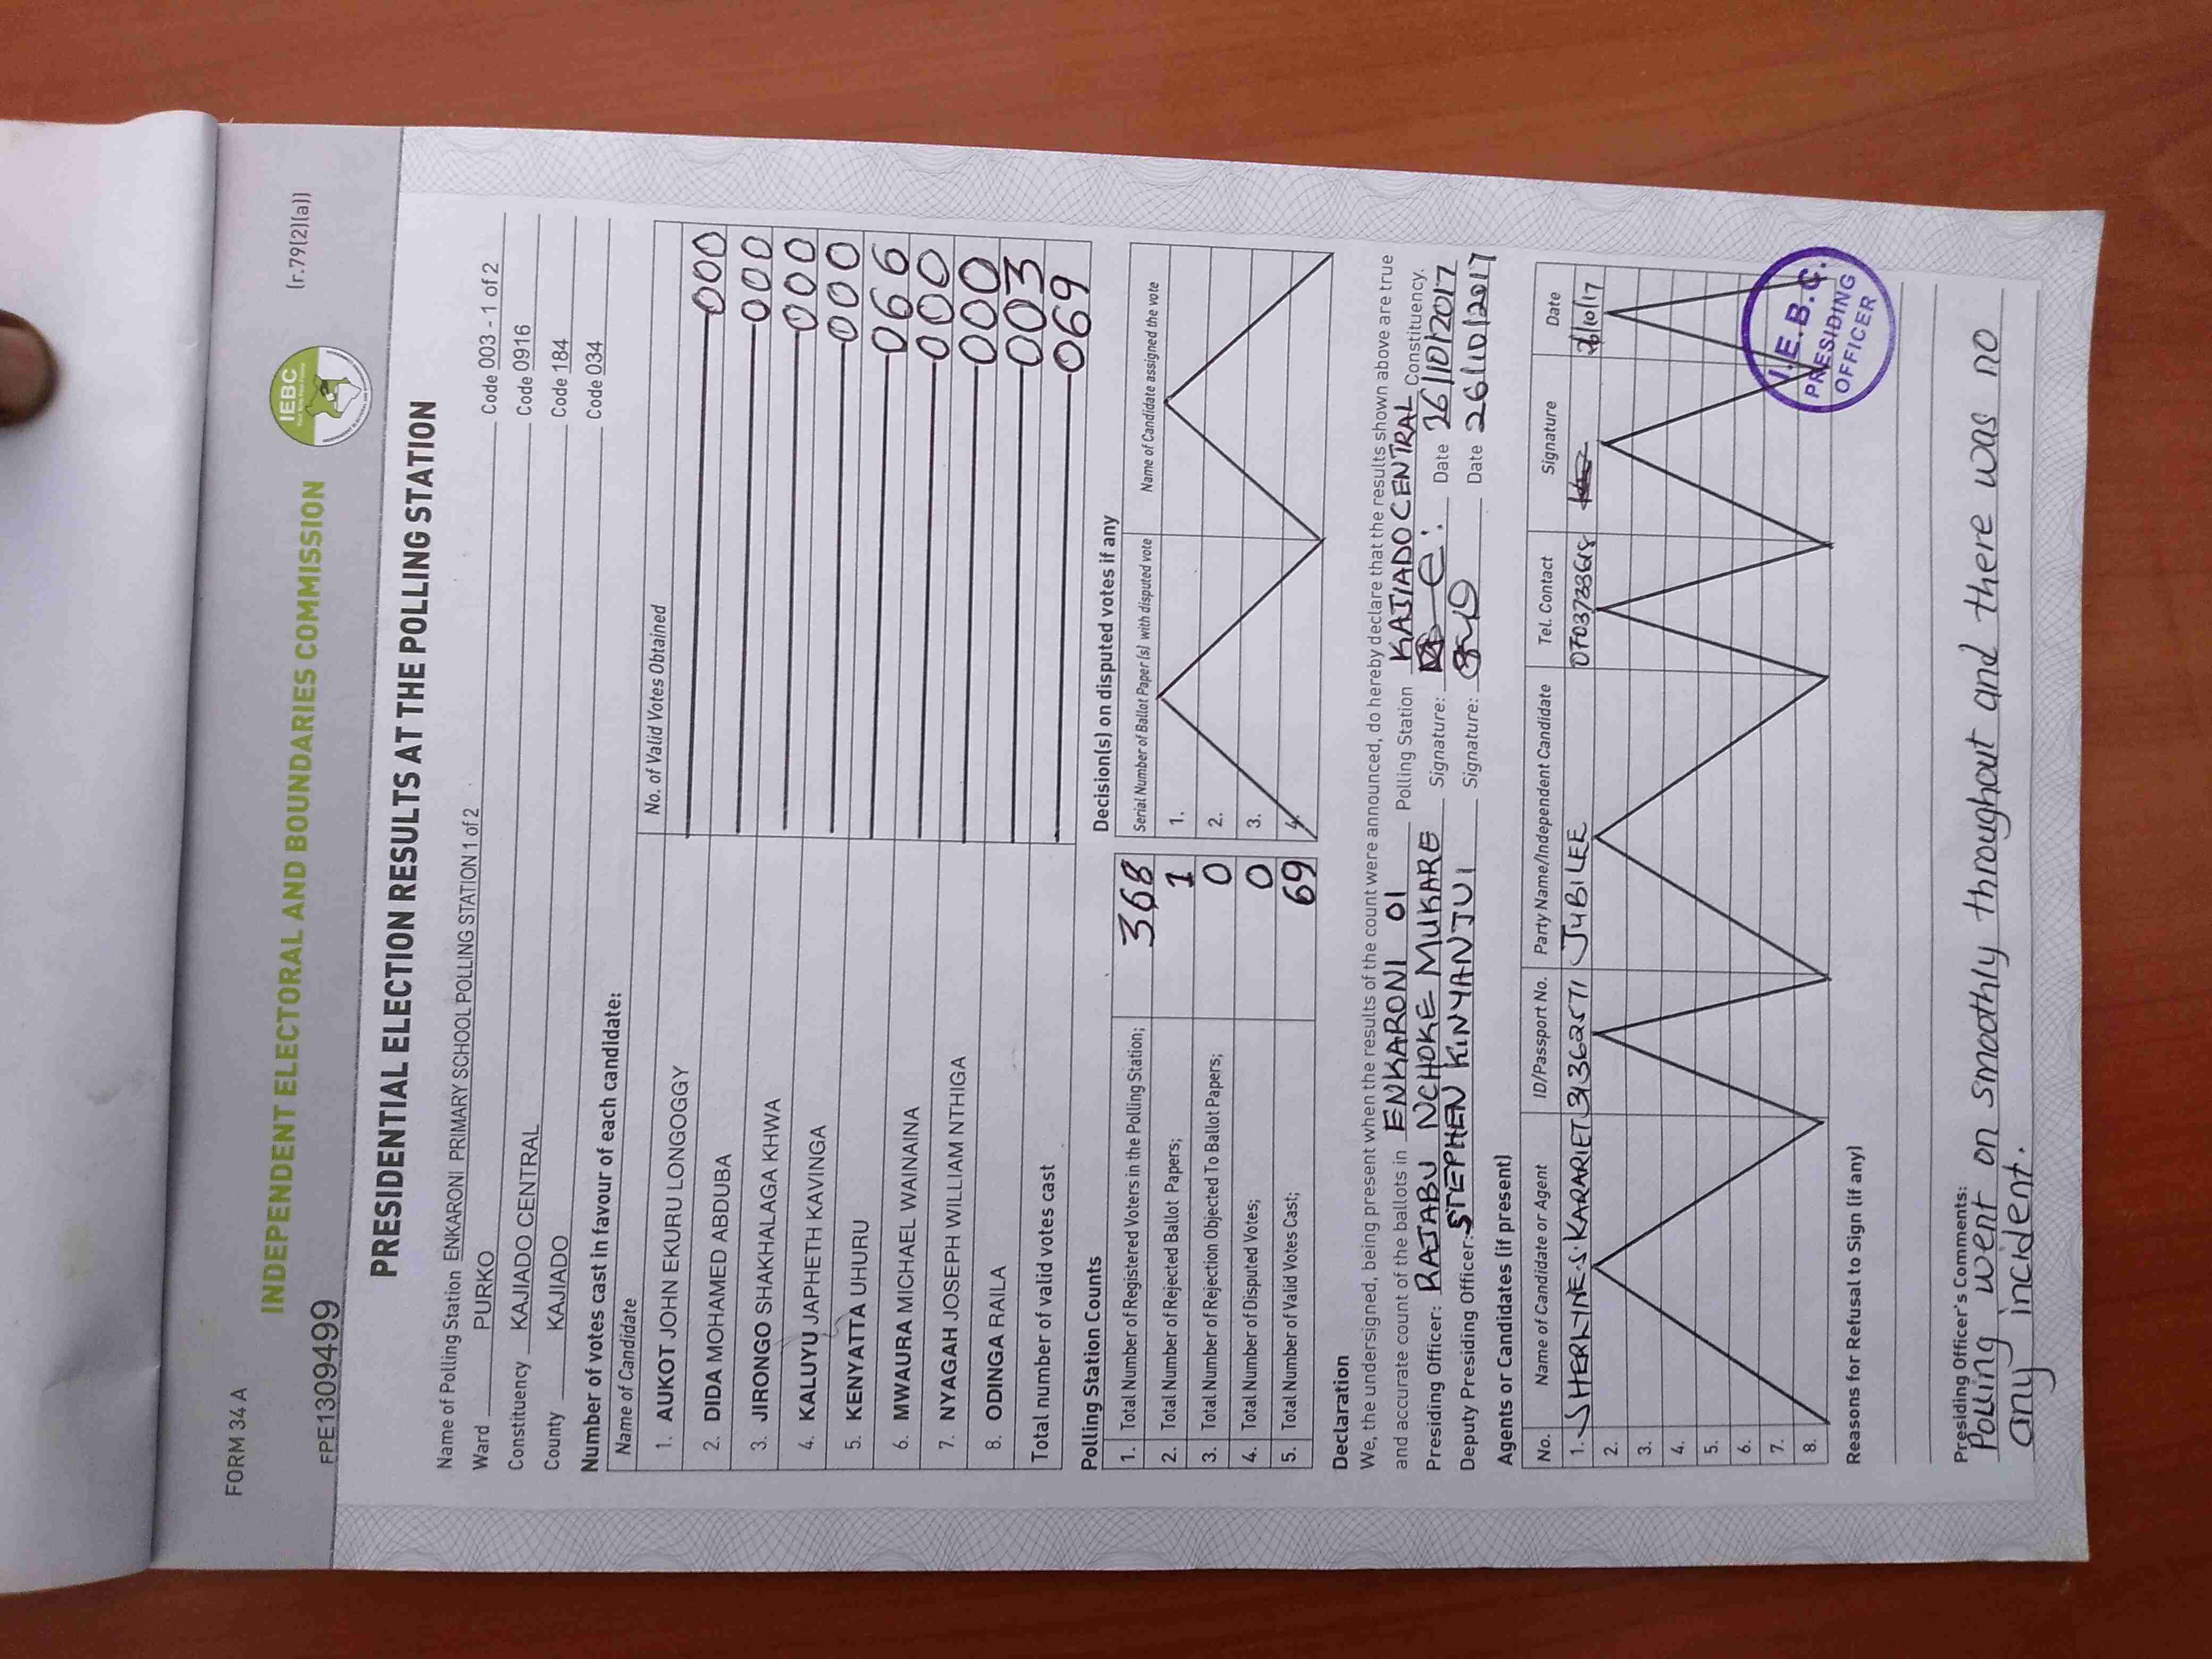 FORM 34 A
(r.79(2)(a))
IEBC
INDEPENDENT ELECTORAL AND BOUNDARIES COMMISSION
FPE13094499
PRESIDENTIAL ELECTION RESULTS AT THE POLLING STATION
Name of Polling Station ENKARONI PRIMARY SCHOOL POLLING STATION 1 of 2 Code 003 - 1 of 2
Ward PURKO Code 0916
Constituency KAJIADO CENTRAL Code 184
County KAJIADO Code 034
Number of votes cast in favour of each candidate:
Name of Candidate No. of Valid Votes Obtained
1. AUKOT JOHN EKURU LONGOGGY 000
2. DIDA MOHAMED ABDUBA 000
3. JIRONGO SHAKHALAGA KHWA 000
4. KALUYU JAPHETH KAVINGA 000
5. KENYATTA UHURU 066
6. MWAURA MICHAEL WAINAINA 000
7. NYAGAH JOSEPH WILLIAM NTHIGA 000
8. ODINGA RAILA 003
Total number of valid votes cast 069
Polling Station Counts
1. Total Number of Registered Voters in the Polling Station; 368
2. Total Number of Rejected Ballot Papers; 1
3. Total Number of Rejection Objected To Ballot Papers; 0
4. Total Number of Disputed Votes; 0
5. Total Number of Valid Votes Cast; 69
Decision(s) on disputed votes if any
Serial Number of Ballot Paper (s) with disputed vote Name of Candidate assigned the vote
1.
2.
3.
4.
Declaration
We, the undersigned, being present when the results of the count were announced, do hereby declare that the results shown above are true
and accurate count of the ballots in ENKARONI 01 Polling Station KAJIADO CENTRAL Constituency.
Presiding Officer: RAJABU NCHOKE MUKARE Signature: Date 26/10/2017
Deputy Presiding Officer: STEPHEN KINYANJUI Signature: Date 26/10/2017
Agents or Candidates (if present)
No. Name of Candidate or Agent ID/Passport No. Party Name/Independent Candidate Tel. Contact Signature Date
1. SHERLINE.S.KARARIET 31362571 JUBILEE 26/10/17
2.
3.
4.
5.
6.
7.
8.
I.E.B.C.
PRESIDING
OFFICER
Reasons for Refusal to Sign (if any)
Presiding Officer's Comments:
Polling went on smoothly throughout and there was no
any incident.